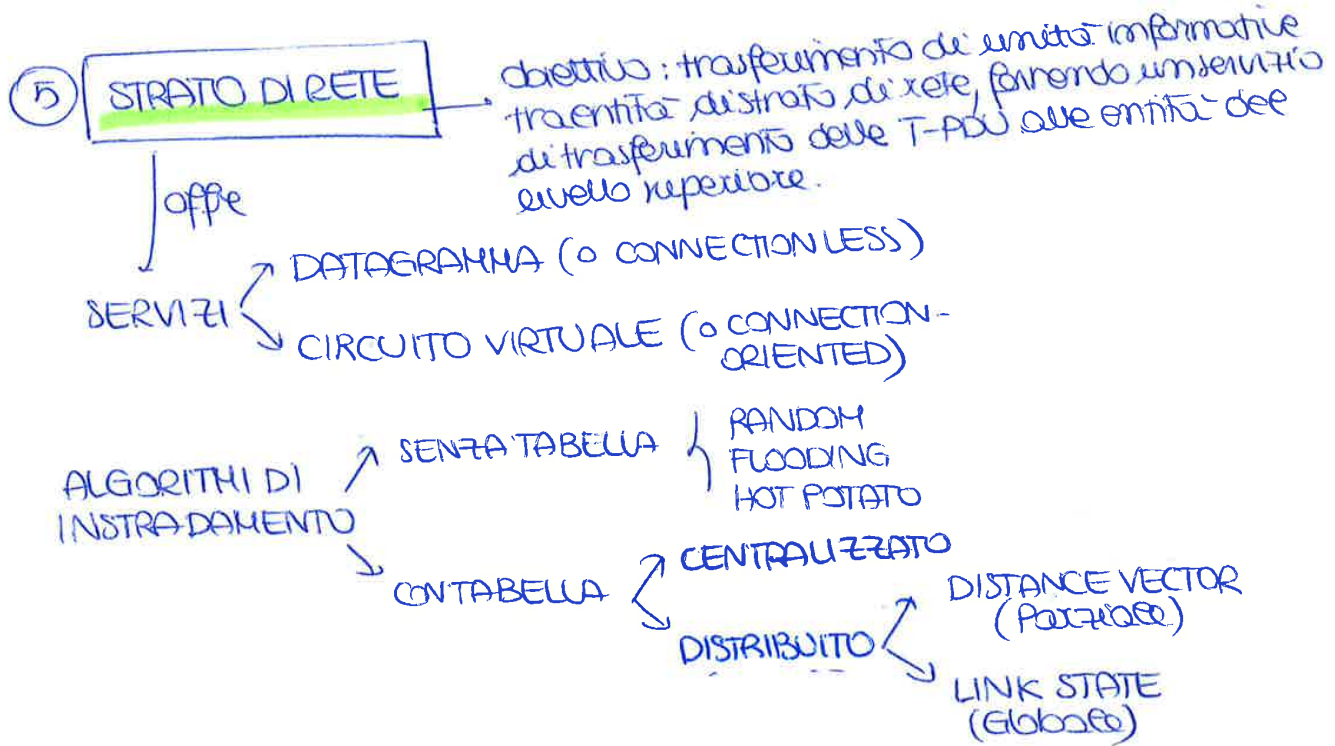 5 STRATO DI RETE
obiettivo: trasferimento di unità informative
tra entità di strato di rete, fornendo un servizio
di trasferimento delle T-PDU alle entità del
livello superiore.
offre
SERVIZI
DATAGRAMMA (O CONNECTIONLESS)
CIRCUITO VIRTUALE (O CONNECTION-
ORIENTED)
ALGORITMI DI
INSTRADAMENTO
SENZA TABELLA
RANDOM
FLOODING
HOT POTATO
CON TABELLA
CENTRALIZZATO
DISTRIBUITO
DISTANCE VECTOR
(Parziale)
LINK STATE
(Globale)